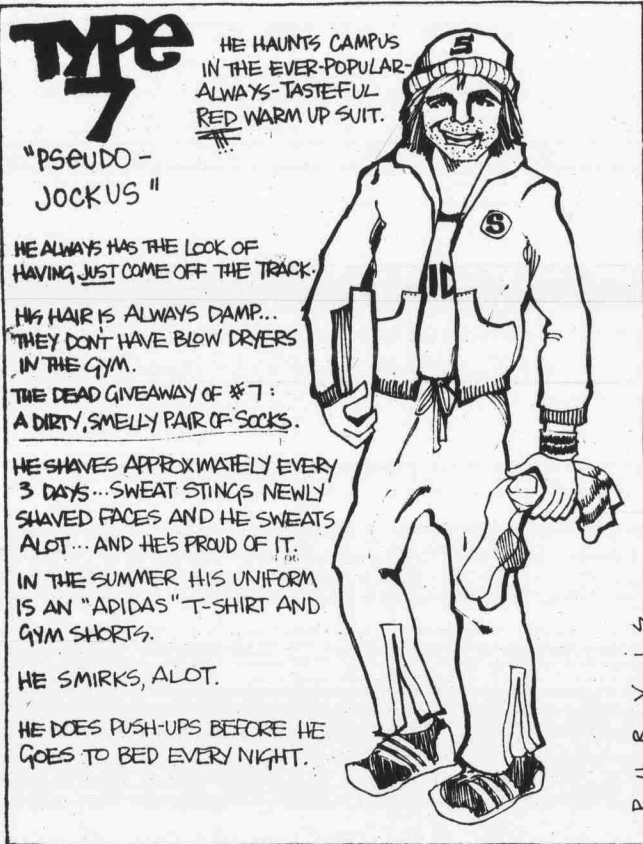 TYPE
7
"PSEUDO-
JOCKUS"
HE HAUNTS CAMPUS
IN THE EVER-POPULAR-
ALWAYS-TASTEFUL
RED WARM UP SUIT.
HE ALWAYS HAS THE LOOK OF
HAVING JUST COME OFF THE TRACK.
HIS HAIR IS ALWAYS DAMP...
THEY DON'T HAVE BLOW DRYERS
IN THE GYM.
THE DEAD GIVEAWAY OF #7:
A DIRTY, SMELLY PAIR OF SOCKS.
HE SHAVES APPROXIMATELY EVERY
3 DAYS...SWEAT STINGS NEWLY
SHAVED FACES AND HE SWEATS
ALOT...AND HE'S PROUD OF IT.
IN THE SUMMER HIS UNIFORM
IS AN "ADIDAS" T-SHIRT AND
GYM SHORTS.
HE SMIRKS, ALOT.
HE DOES PUSH-UPS BEFORE HE
GOES TO BED EVERY NIGHT.
S
S
ID
PURVIS